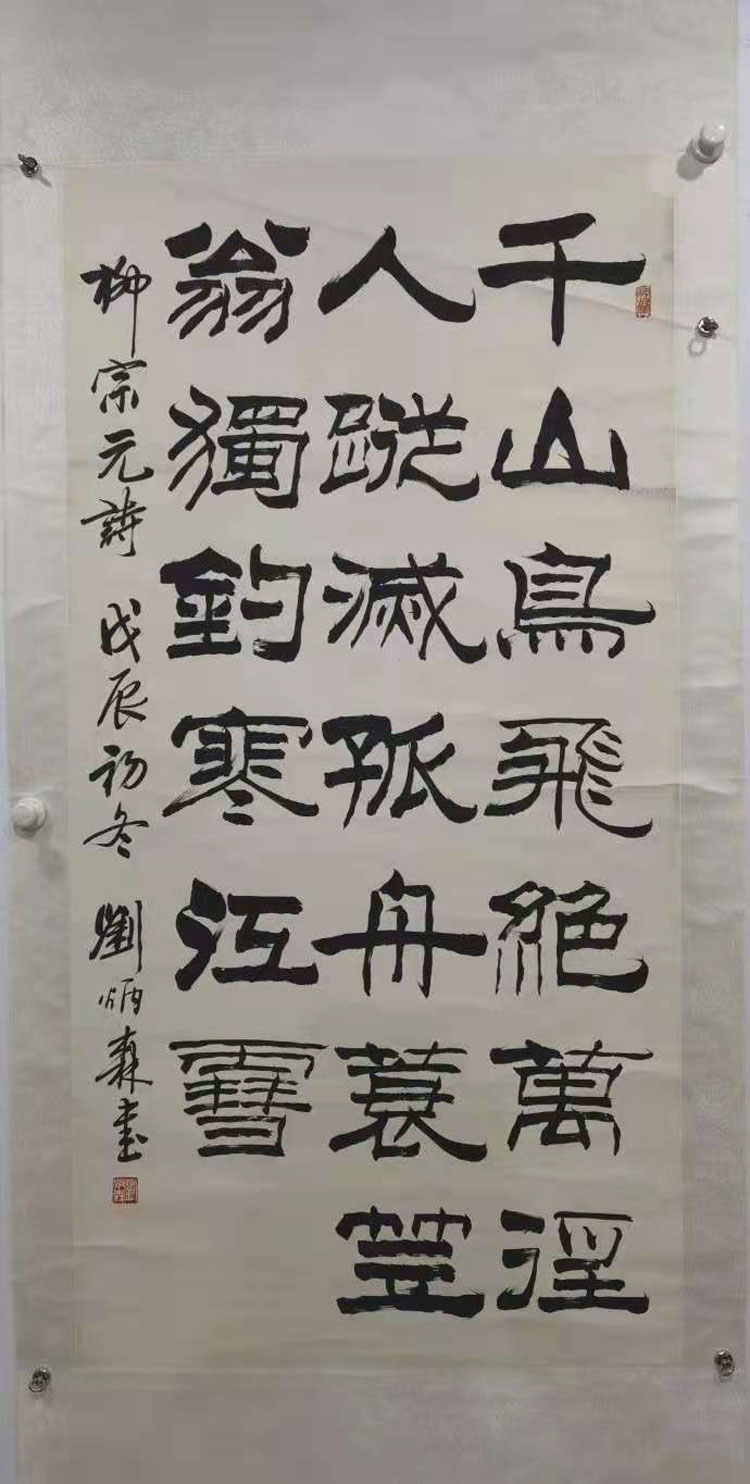 千山鳥飛絕萬涇
人蹤滅孤舟蓑笠
翁獨釣寒江雪
柳宗元詩 戊辰初冬 劉炳森書